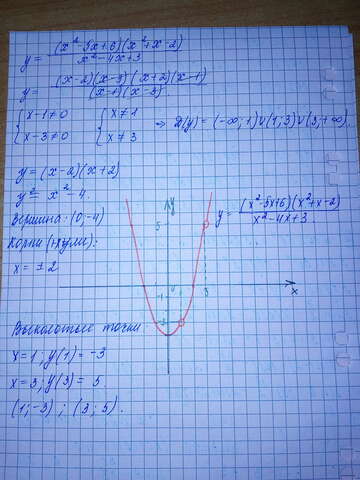 y = (x² - 5x + 6)(x² + x - 2) / x² - 4x + 3
y = (x-2)(x-3)(x+2)(x-1) / (x-1)(x-3).
{ x-1≠0 { x≠1
{ x-3≠0 { x≠3 => D(y) = (-∞; 1)∪(1; 3)∪(3; +∞).
y = (x-2)(x+2)
y = x² - 4.
Вершина: (0; -4)
Корни (нули):
x = ± 2
y
5
y = (x²-5x+6)(x²+x-2) / x²-4x+3
-1
3
x
-3
Выколотые точки
x = 1; y(1) = -3
x = 3; y(3) = 5.
(1; -3) ; (3; 5).